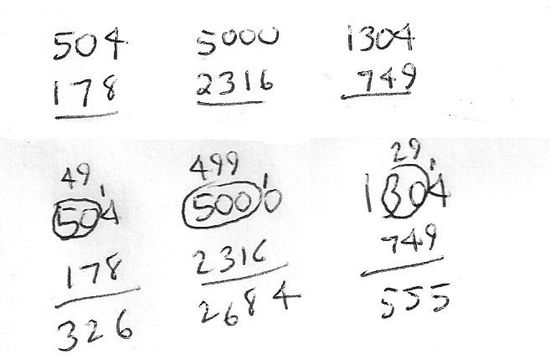 504 5000 1304
178 2316 749
49 499 29
1 1 1
504 5000 1304
178 2316 749
326 2684 555